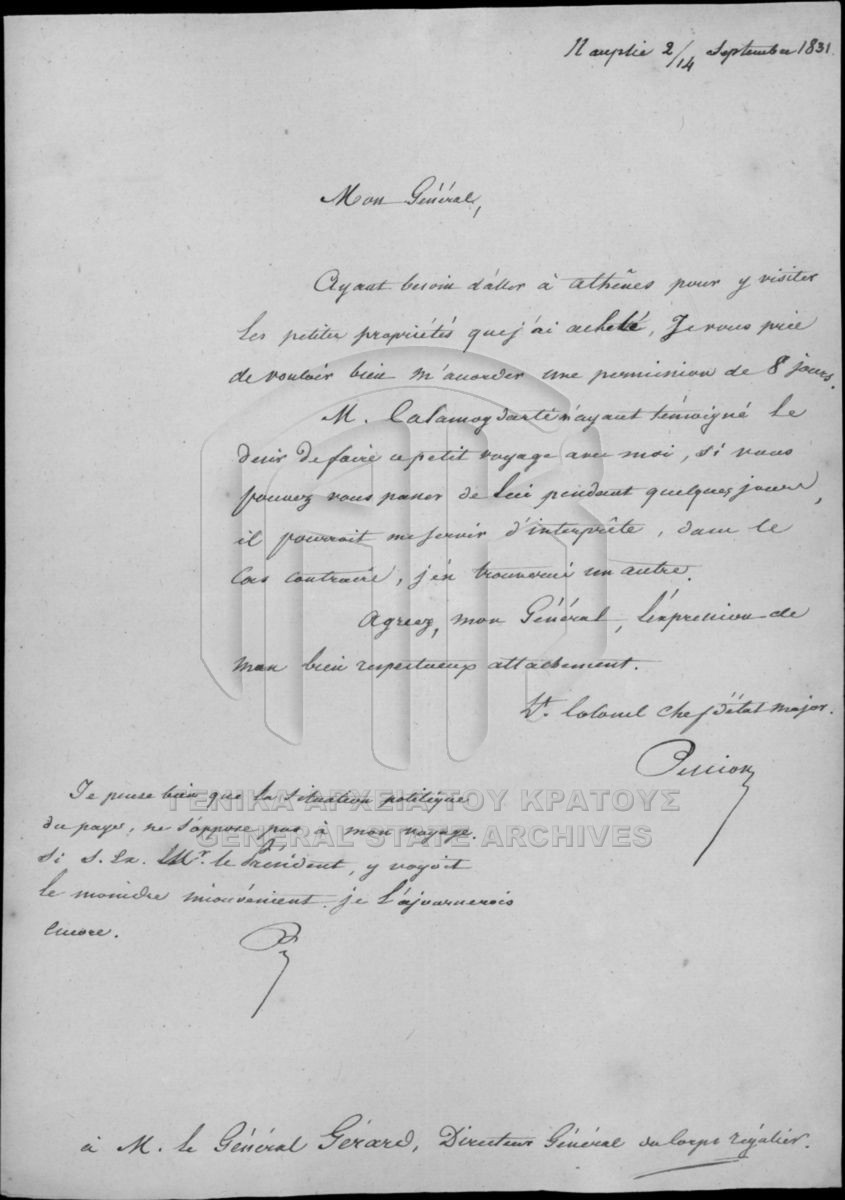 Nauplie 2/14 Septembre 1831.
Mon Général,
Ayant besoin d'aller à athênes pour y visiter
les petites propriétés que j'ai acheté, Je vous prie
de vouloir bien m'accorder une permission de 8 jours.
M. Calamogdarté m'ayant témoigné le
desir de faire ce petit voyage avec moi, si vous
pouvez vous passer de lui pendant quelques jours,
il pourroit me servir d'interprête, dans le
Cas contraire, j'en trouverai un autre.
Agréez, mon Général, l'expression de
mon bien respectueux attachement.
Lt. Colonel Chef d'état major.
Pellion
Je pense bien que la situation politique
du pays, ne s'oppose pas à mon voyage.
si S. Ex. Mr. le Président, y voyoit
le moindre inconvénient je l'ajournerois
encore.
P
ΓΕΝΙΚΑ ΑΡΧΕΙΑ ΤΟΥ ΚΡΑΤΟΥΣ
GENERAL STATE ARCHIVES
à M. le Général Gérard, Directeur Général du Corps régulier.